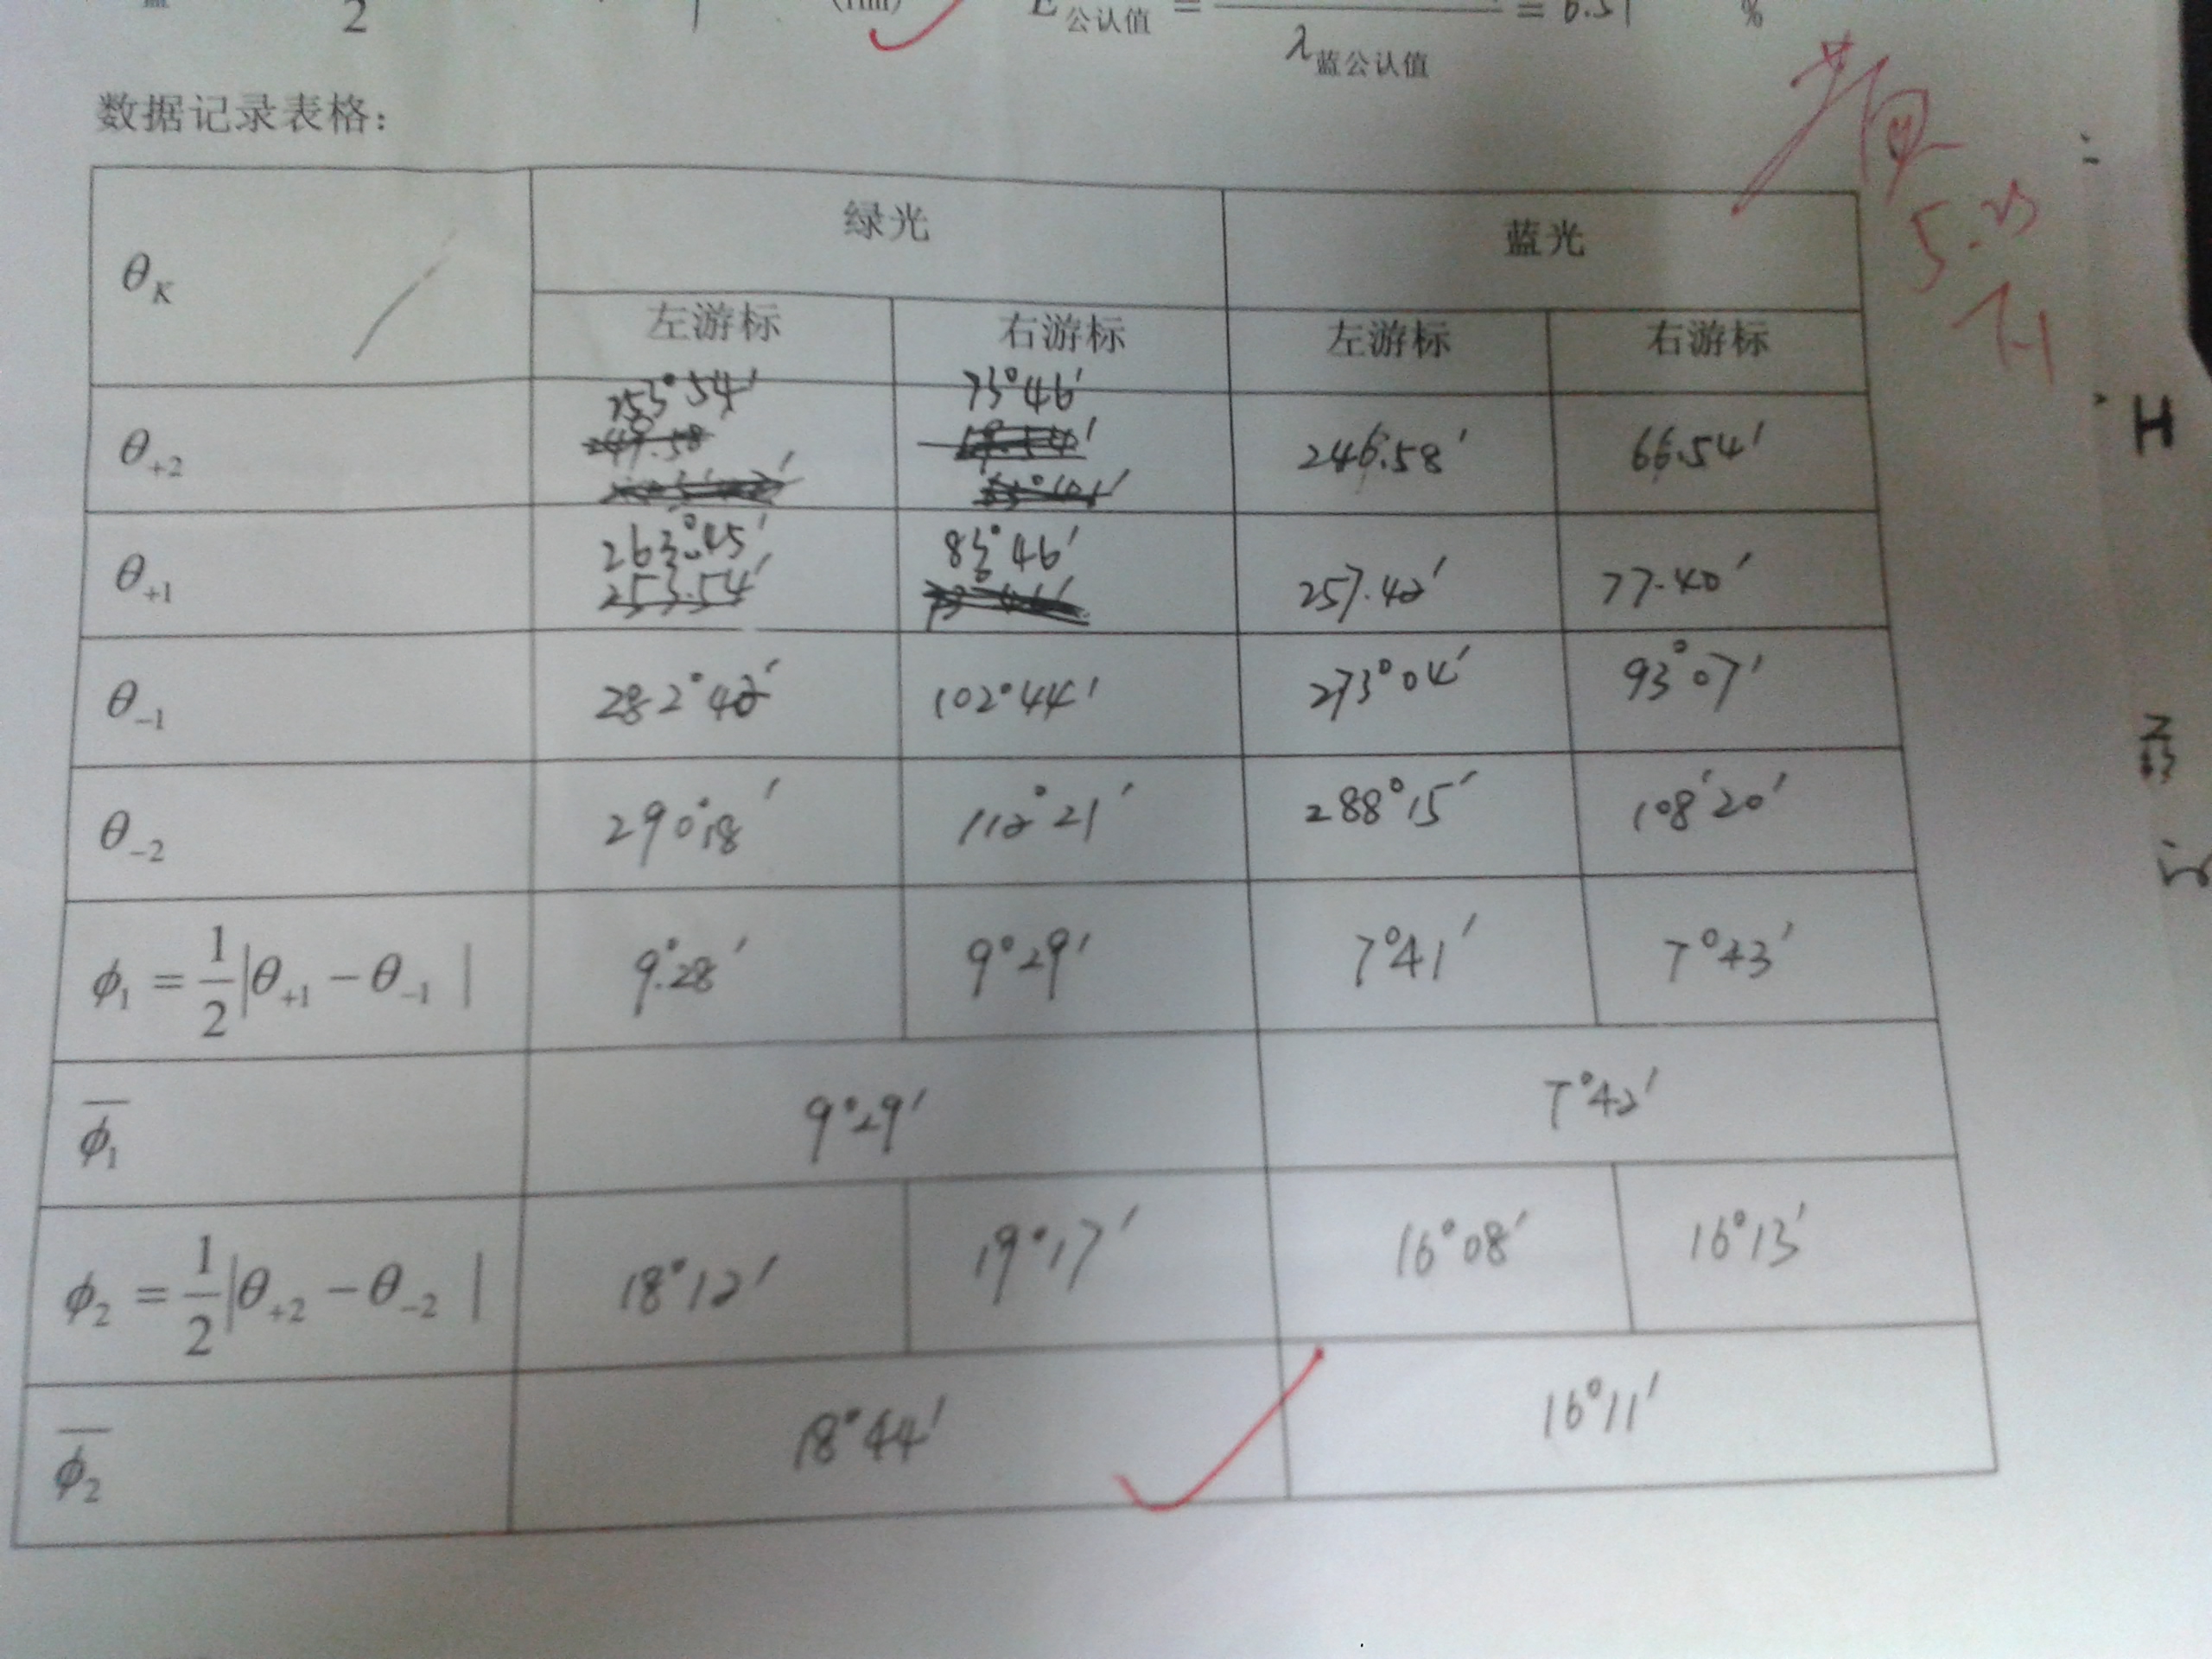 2
(nm)
E公认值 = = 6.51 %
λ蓝公认值
数据记录表格：
θK 绿光 蓝光
左游标 右游标 左游标 右游标
θ+2 253°54′ 73°46′ 246.58′ 66.54′
θ+1 263°45′ 83°46′ 257.42′ 77.40′
253.54′
θ-1 282°42′ 102°44′ 273°04′ 93°07′
θ-2 290°18′ 112°21′ 288°15′ 108°20′
ϕ1 = 1/2|θ+1 − θ-1 | 9°28′ 9°29′ 7°41′ 7°43′
ϕ1 9°29′ 7°42′
ϕ2 = 1/2|θ+2 − θ-2 | 18°12′ 19°17′ 16°08′ 16°13′
ϕ2 18°44′ 16°11′
H